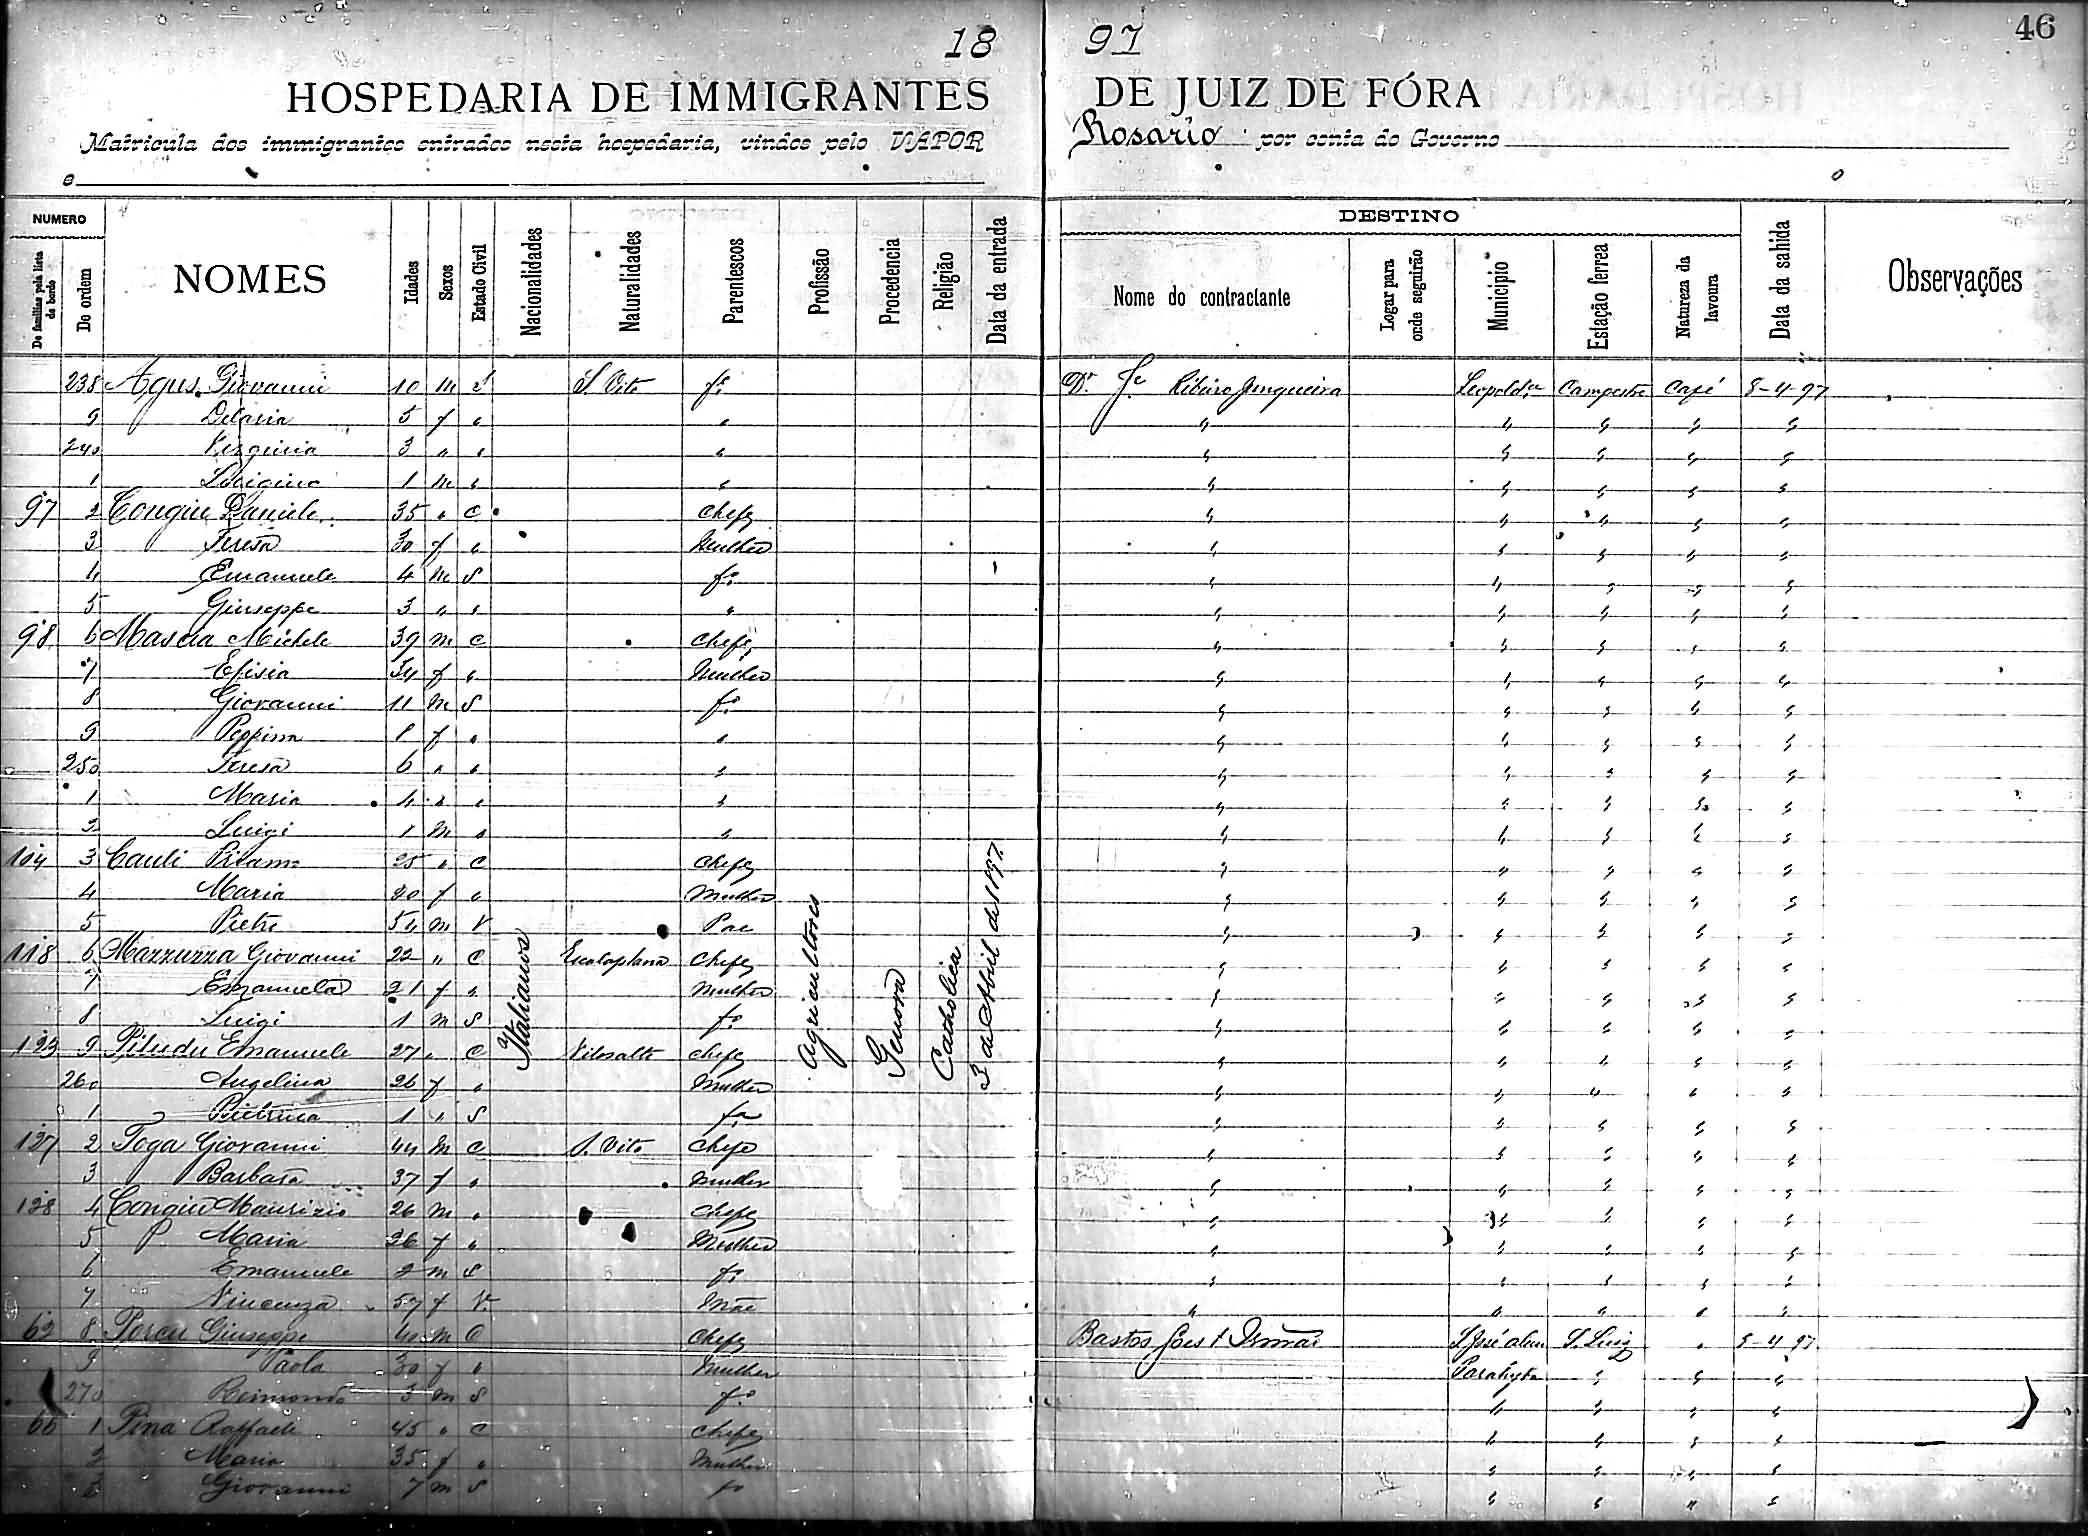 46
18 97
HOSPEDARIA DE IMMIGRANTES DE JUIZ DE FÓRA
Matricula dos immigrantes entrados nesta hospedaria, vindos pelo VAPOR Rosario por conta do Governo
NUMERO DESTINO
De familias pela lista de bordo De ordem NOMES Idades Sexos Estado Civil Nacionalidades Naturalidades Parentescos Profissão Procedencia Religião Data da entrada Nome do contractante Logar para onde seguirão Municipio Estação ferrea Natureza da lavoura Data da sahida Observações
238 Agus Giovanni 10 m S S. Vito fo. Dr. Je. Ribeiro Junqueira Leopolda Campestre Café 8-4-97
9 5 f " " " " " " "
240 3 " " " " " " " "
1 1 m " " " " " " "
97 2 Congiu Daniele 35 " C chefe " " " " "
3 Teresa 30 f " Mulher " " " " "
4 Emanuele 4 m S fo. " " " " "
5 Giuseppe 3 " " " " " " " "
98 6 Mascia Michele 39 m C chefe " " " " "
7 Efisia 34 f " Mulher " " " " "
8 Giovanni 11 m S fo. " " " " "
9 Peppina f " " " " " " "
250 Teresa 6 " " " " " " " "
1 Maria 4 " " " " " " " "
2 Luigi 1 m " " " " " " "
104 3 Cauli 25 " C chefe " " " " "
4 Maria 20 f " Mulher " " " " "
5 Pietro 54 m V Pae " " " " "
118 6 Mazzuzza Giovanni 22 " C Escalaplana chefe " " " " "
7 Emanuela 21 f " Mulher " " " " "
8 Luigi 1 m S fo. " " " " "
123 9 Piludu Emanuele 27 " C chefe " " " " "
260 Angelina 26 f " Mulher " " " " "
1 1 " S fa " " " " "
127 2 Toga Giovanni 44 m C S. Vito chefe " " " " "
3 Barbara 37 f " Mulher " " " " "
128 4 Congiu Maurizio 26 m " chefe " " " " "
5 P. Maria 26 f " Mulher " " " " "
6 Emanuele 2 m S fo. " " " " "
7 Vincenza 57 f V. Mãe " " " " "
62 8 Porcu Giuseppe 40 m C chefe Bastos, Goes & Irmão S. José alem S. Luiz " 8-4-97
9 Paola 30 f " Mulher Parahyba " " "
270 Reimondo 3 m S fo. " " " "
66 1 Pina Raffaele 45 " C chefe " " " "
2 Maria 35 f " Mulher " " " "
3 Giovanni 7 m S fo " " " "
Italianos
Agricultores
Genova
Catholica
3 de Abril de 1897